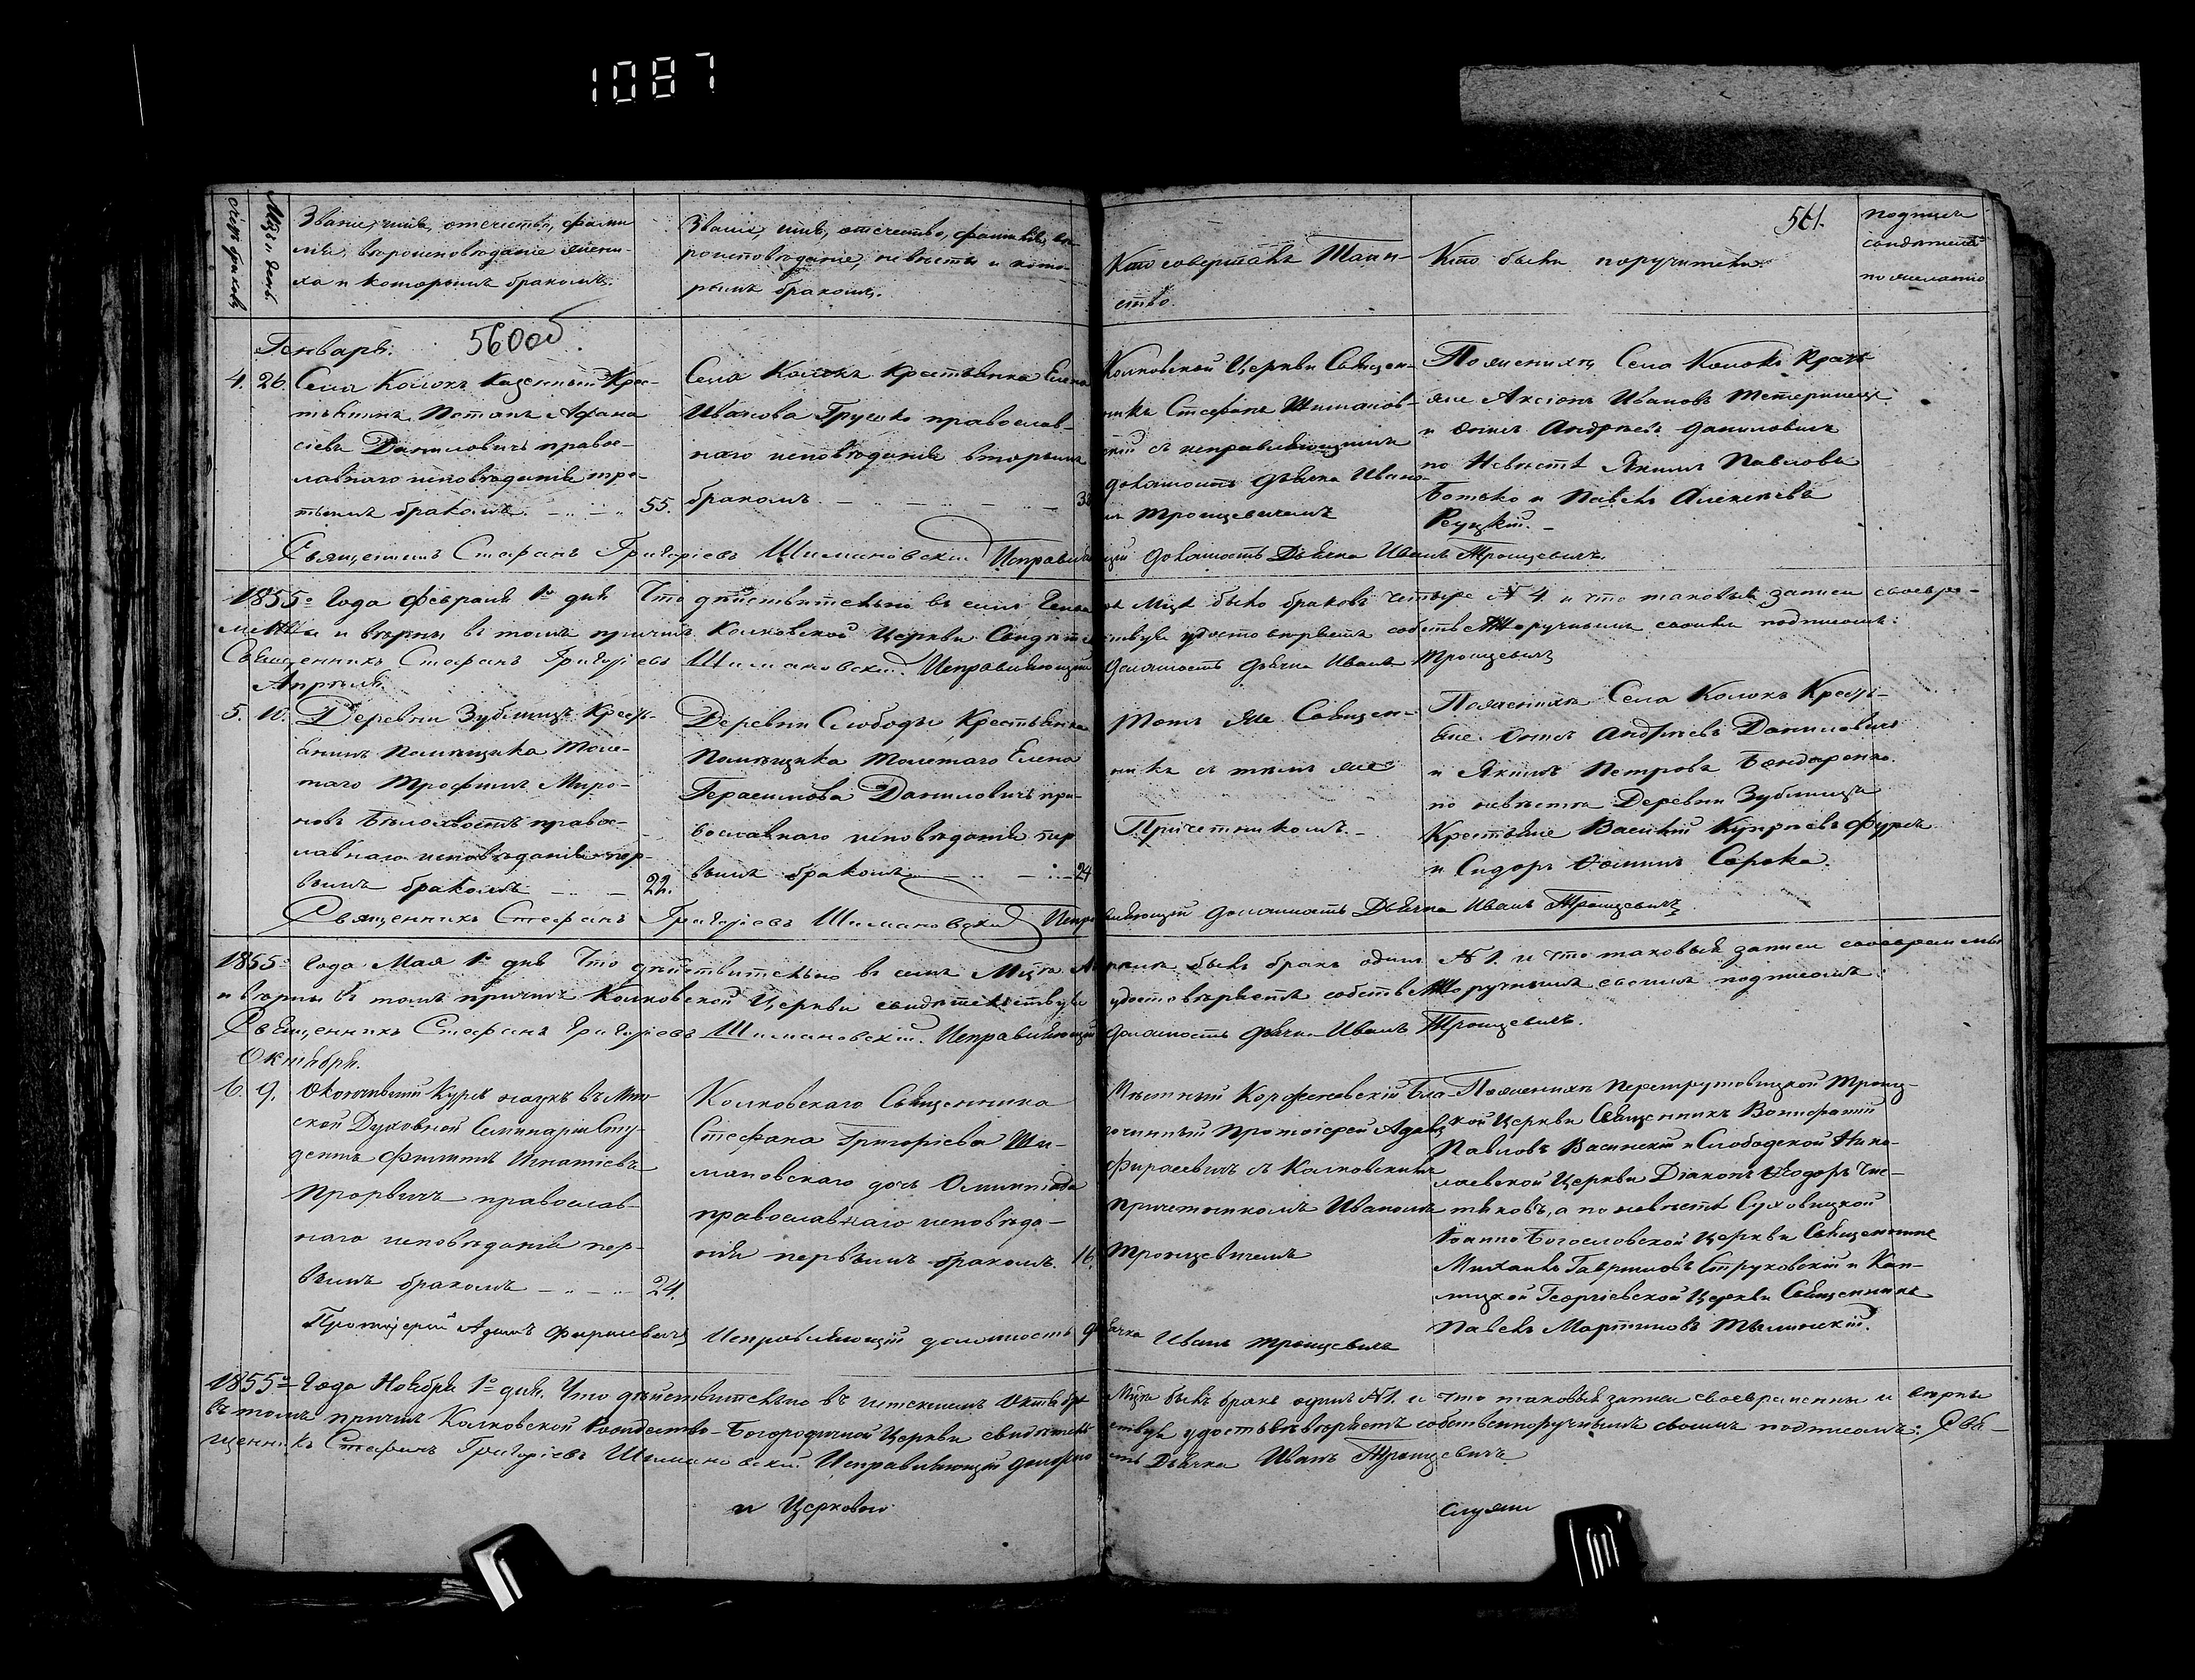 1087
Счетъ браковъ
Мѣсц. и день.
Званіе, имя, отечество, фами
лія, вѣроисповѣданіе жени-
ха и которымъ бракомъ.
Званіе, имя, отечество, фамилія, вѣ-
роисповѣданіе, невѣсты и кото-
рымъ бракомъ.
Кто совершалъ Таин-
ство.
Кто были поручители.
561.
подписи
свидетелей
по желанію
Генварь.
560об
4. 26. Села Колокъ Казенный Крес-
тьянинъ Потапъ Афана
сіевъ Даниловичъ правос-
лавнаго исповѣданія тре-
тьимъ бракомъ. 55.
Села Колокъ Крестьянка Елена
Иванова Грушко православ-
наго исповѣданія вторымъ
бракомъ
Колковской Церкви Священ-
никъ Стефанъ Шимановъ-
скій съ исправляющимъ
должность Дьячка Ивано-
мъ Троицевичемъ
По женихѣ Села Колокъ Кресть-
яне Аксіонъ Ивановъ
и Андрѣевъ Даниловичъ
по Невѣстѣ Якимъ Павловъ
Ботько и Павелъ Алексѣевъ
Реуцкій.
Священникъ Стефанъ Григоріевъ Шимановскій Исправляющій должность Дьячка Иванъ Троицевичъ.
1855о Года Февраля 1о дня Что дѣйствительно въ семъ Генварѣ Мцѣ было браковъ четыре N 4. и что таковыя записи своевре-
менны и вѣрны въ томъ причтъ Колковской Церкви Свидѣтельствуя удостовѣряетъ собственноручнымъ своимъ подписомъ:
Священникъ Стефанъ Григоріевъ Шимановскій. Исправляющій Должность Дьячка Иванъ Троицевичъ
Апрѣля.
5. 10. Деревни Зублищъ Кресть-
янинъ Помѣщика Толс-
таго Трофимъ Миро-
новъ Бѣлохвостъ правос-
лавнаго исповѣданія пер-
вымъ бракомъ 22.
Деревни Слободы Крестьянка
Помѣщика Толстаго Елена
Герасимова Даниловичъ пра-
вославнаго исповѣданія пер
вымъ бракомъ 24
Тотъ же Священ-
никъ съ тѣмъ же
Причетникомъ.
По женихѣ Села Колокъ Кресть-
яне Андрѣевъ Даниловичъ
и Якимъ Петровъ Бондаренко.
по невѣстѣ Деревни Зублища
Крестьяне Василій Купрѣевъ Фурсъ
и Сидоръ Ѳоминъ Сорока.
Священникъ Стефанъ Григоріевъ Шимановскій Исправляющій должность Дьячка Иванъ Троицевичъ
1855о Года Мая 1о дня Что дѣйствительно въ семъ Мцѣ Апрѣлѣ былъ бракъ одинъ N 1. и что таковыя записи своевременны
и вѣрны въ томъ причтъ Колковской Церкви свидѣтельствуя удостовѣряетъ собственноручнымъ своимъ подписомъ:
Священникъ Стефанъ Григоріевъ Шимановскій. Исправляющій должность Дьячка Иванъ Троицевичъ.
Октября.
6. 9. Окончившій Курсъ наукъ въ Мин
ской Духовной Семинаріи Сту-
дентъ Филиппъ Игнатіевъ
Прорвичъ православ-
наго исповѣданія пер-
вымъ бракомъ 24.
Колковскаго Священника
Стефана Григоріева Ши-
мановскаго дочь Олимпіада
православнаго исповѣда-
нія первымъ бракомъ. 16.
Мѣстный Бла-
гочинный Протоіерей Адамъ
Фирасевичъ съ Колковскимъ
Причетникомъ Иваномъ
Троицевичемъ
По женихѣ Перетрутовицкой Троиц-
кой Церкви Священникъ Вонифатій
Павловъ и Слободской Нико-
лаевской Церкви Діаконъ Ѳеодоръ Чис-
тяковъ, а по невѣстѣ Суховицкой
Іоанно Богословской Церкви Священникъ
Михаилъ Гавриловъ Струковскій и Кап-
лицкой Георгіевской Церкви Священникъ
Павелъ Мартиновъ Тылинскій.
Протоіерей Адамъ Фирасевичъ Исправляющій должность Дьячка Иванъ Троицевичъ
1855о Года Ноября 1о дня. Что дѣйствительно въ истекшемъ Октябрѣ Мцѣ былъ бракъ одинъ N 1. и что таковыя записи своевременны и вѣрны
въ томъ причтъ Колковской Рождество-Богородичной Церкви свидѣтельствуя удостовѣряетъ собственноручнымъ своимъ подписомъ: Свя-
щенникъ Стефанъ Григоріевъ Шимановскій Исправляющій должность Дьячка Иванъ Троицевичъ
и Церковно
служи